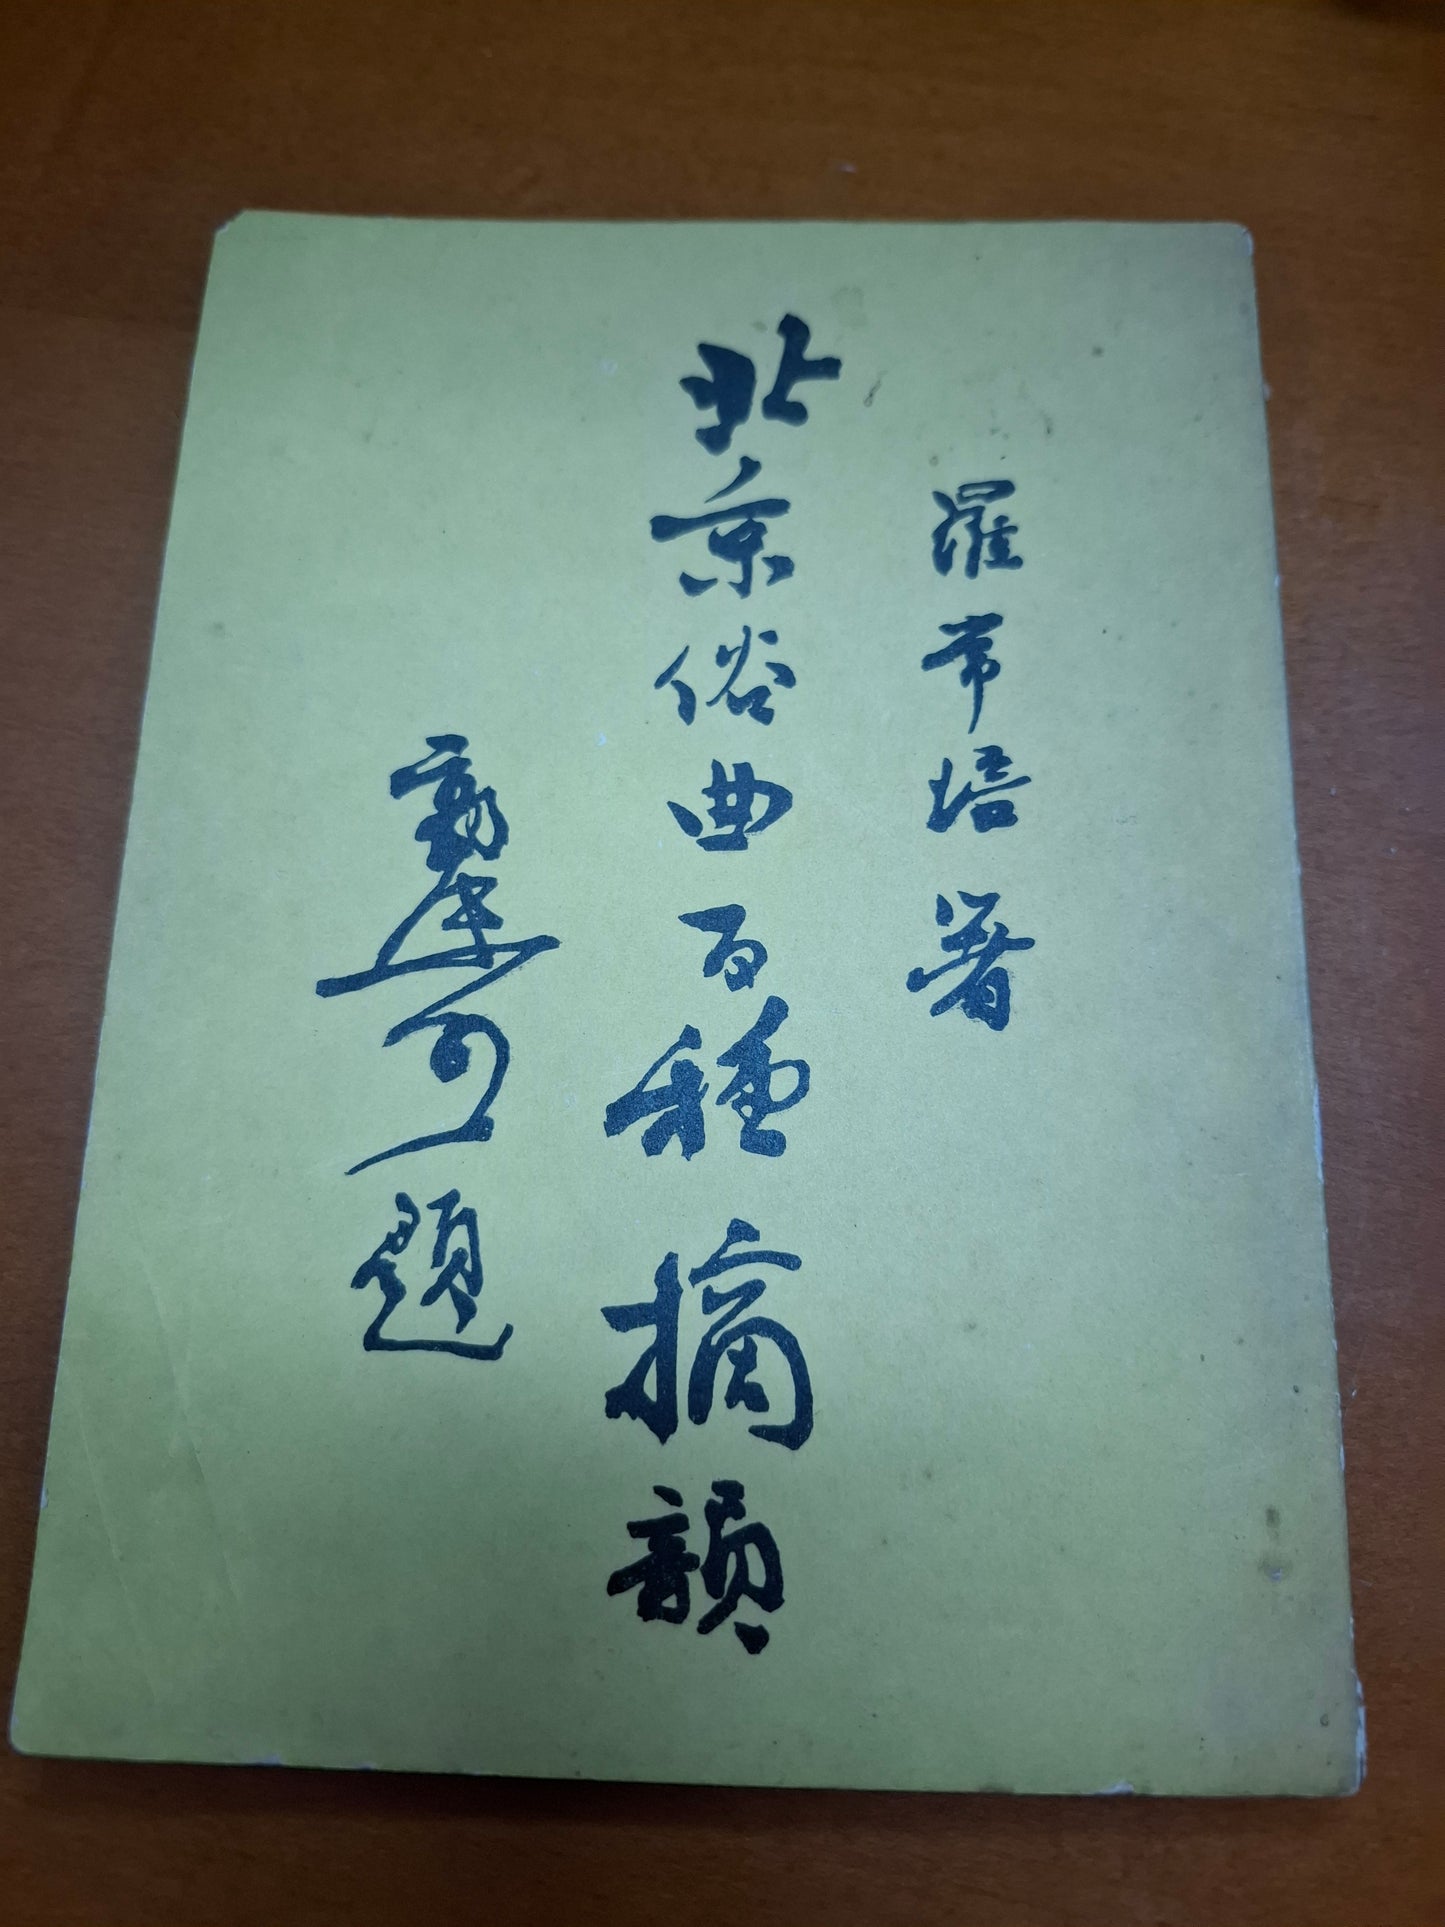 羅常培 著
北京俗曲百種摘韻
郭 可 題